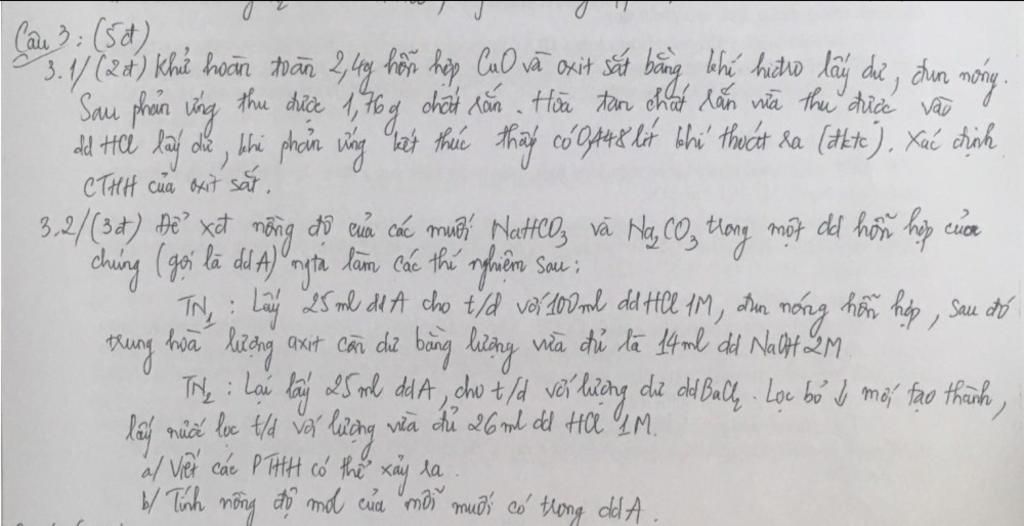 Câu 3: (5đ)
3.1/ (2đ) Khử hoàn toàn 2,4g hỗn hợp CuO và oxit sắt bằng khí hiđro lấy dư, đun nóng.
Sau phản ứng thu được 1,76g chất rắn. Hòa tan chất rắn vừa thu được vào
dd HCl lấy dư, khi phản ứng kết thúc thấy có 0,448 lít khí thoát ra (đktc). Xác định
CTHH của oxit sắt.
3.2/ (3đ) Để xđ nồng độ của các muối NaHCO₃ và Na₂CO₃ trong một dd hỗn hợp của
chúng (gọi là dd A) ngta làm các thí nghiệm sau:
TN₁: Lấy 25 ml dd A cho t/d với 100ml dd HCl 1M, đun nóng hỗn hợp, sau đó
trung hòa lượng axit còn dư bằng lượng vừa đủ là 14ml dd NaOH 2M
TN₂: Lại lấy 25 ml dd A, cho t/d với lượng dư dd BaCl₂. Lọc bỏ ↓ mới tạo thành,
lấy nước lọc t/d với lượng vừa đủ 26 ml dd HCl 1M.
a/ Viết các PTHH có thể xảy ra.
b/ Tính nồng độ mol của mỗi muối có trong dd A.